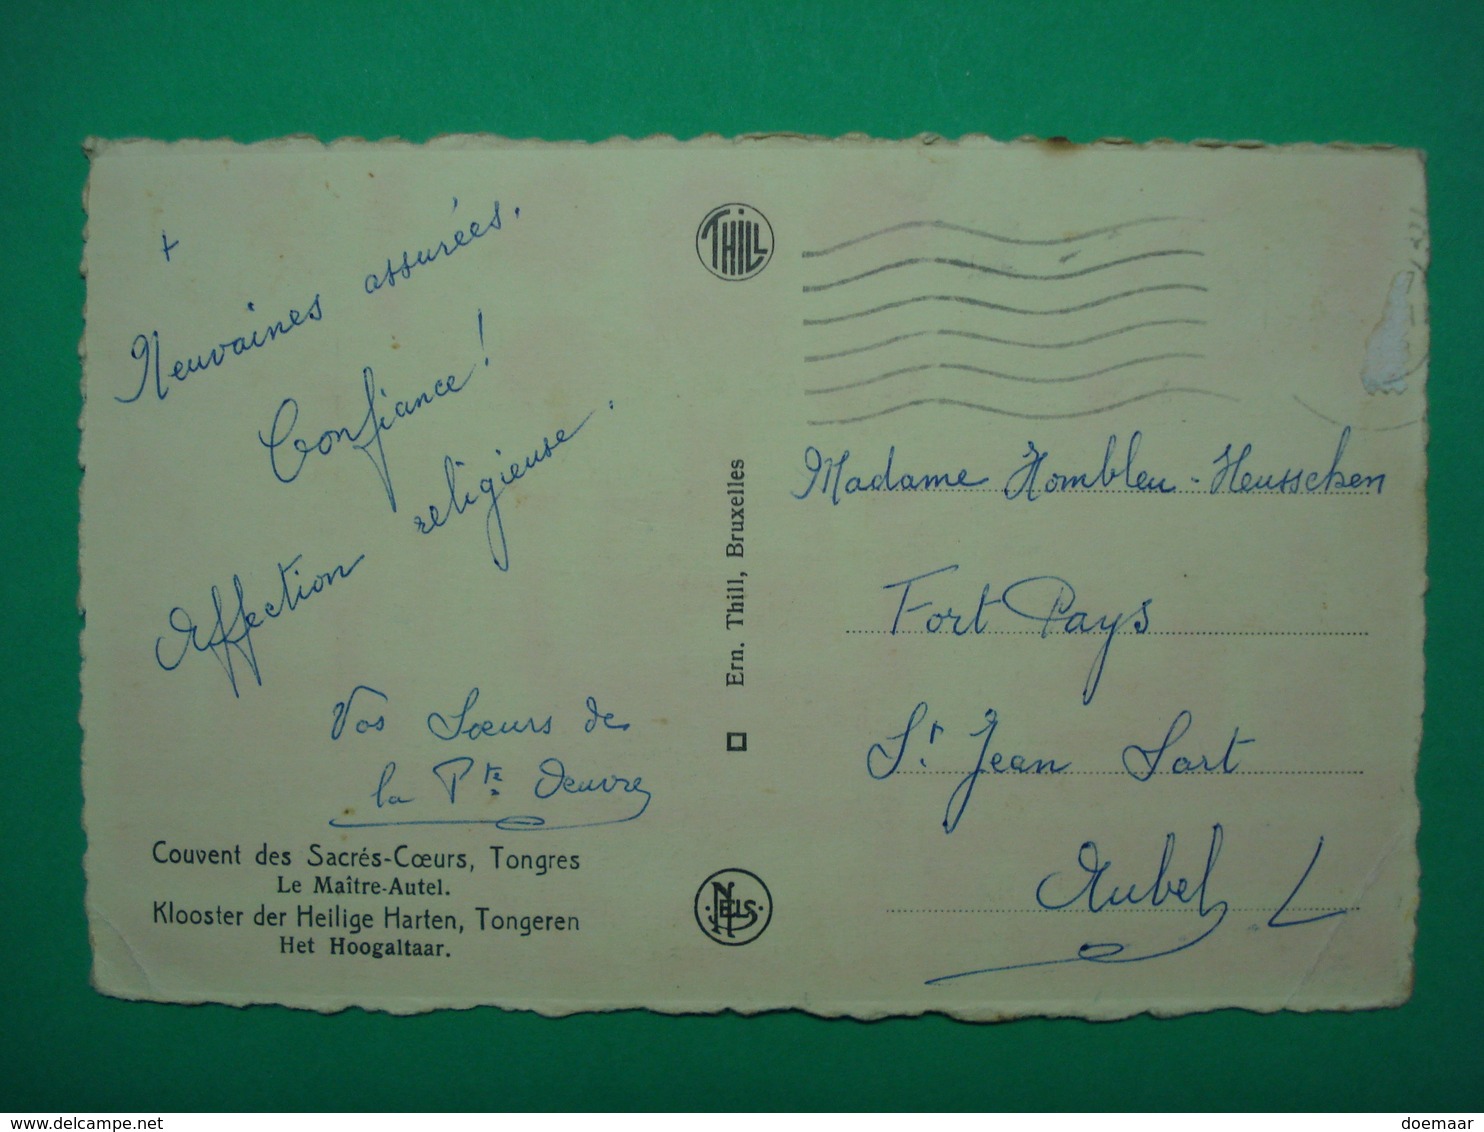 +
Neuvaines assurées.
Confiance !
Affection religieuse.
Vos Sœurs de
la Pte Oeuvre
Couvent des Sacrés-Cœurs, Tongres
Le Maître-Autel.
Klooster der Heilige Harten, Tongeren
Het Hoogaltaar.
THILL
Ern. Thill, Bruxelles
NELS
Madame Hombleu-Heusschen
Fort Pays
St Jean Sart
Aubel L
delcampe.net
doemaar